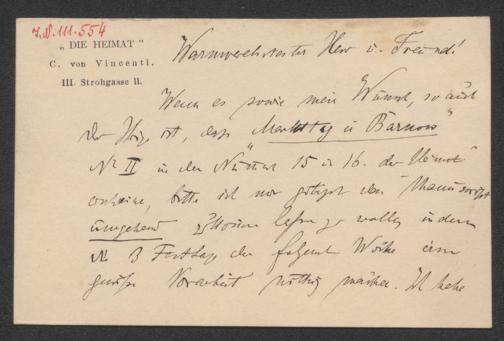 J.N. 111.554
„ DIE HEIMAT "
C. von Vincenti.
III. Strohgasse 11.
Warmverehrtester Herr u. Freund!
Wenn es sowie mein Wunsch, so auch
der Ihrige ist, daß „Markttag in Barnow"
Nr II in den Nummern 15 u 16. der „Heimat"
erscheine, bitte ich mir gütigst das Manuscript
umgehend zukommen lassen zu wollen, indem
die Festtage der folgenden Woche eine
gewisse Vorarbeit nöthig machen. Ich habe